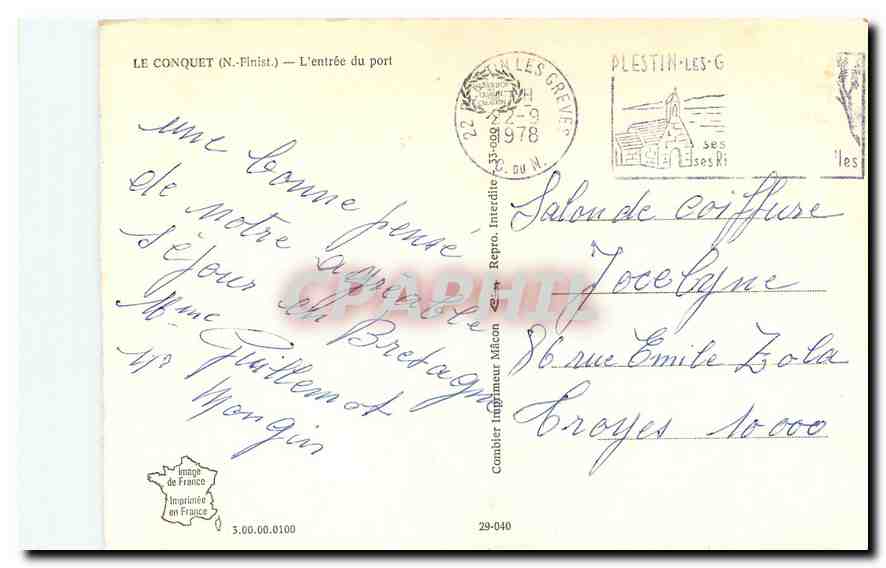 LE CONQUET (N.-Finist.) — L'entrée du port
une bonne pensé
de notre agréable
séjour en Bretagne
Mme Guillemot
Mongin
Image
de France
Imprimée
en France
3.00.00.0100
29-040
Combier Imprimeur Mâcon
Repro. Interdite - 33-000
22 TIN LES GREVES
22-9
1978
C. DU N.
PLESTIN-LES-G
ses
ses Ri
les
CPAPHIL
Salon de coiffure
Jocelyne
86 rue Emile Zola
Troyes 10000